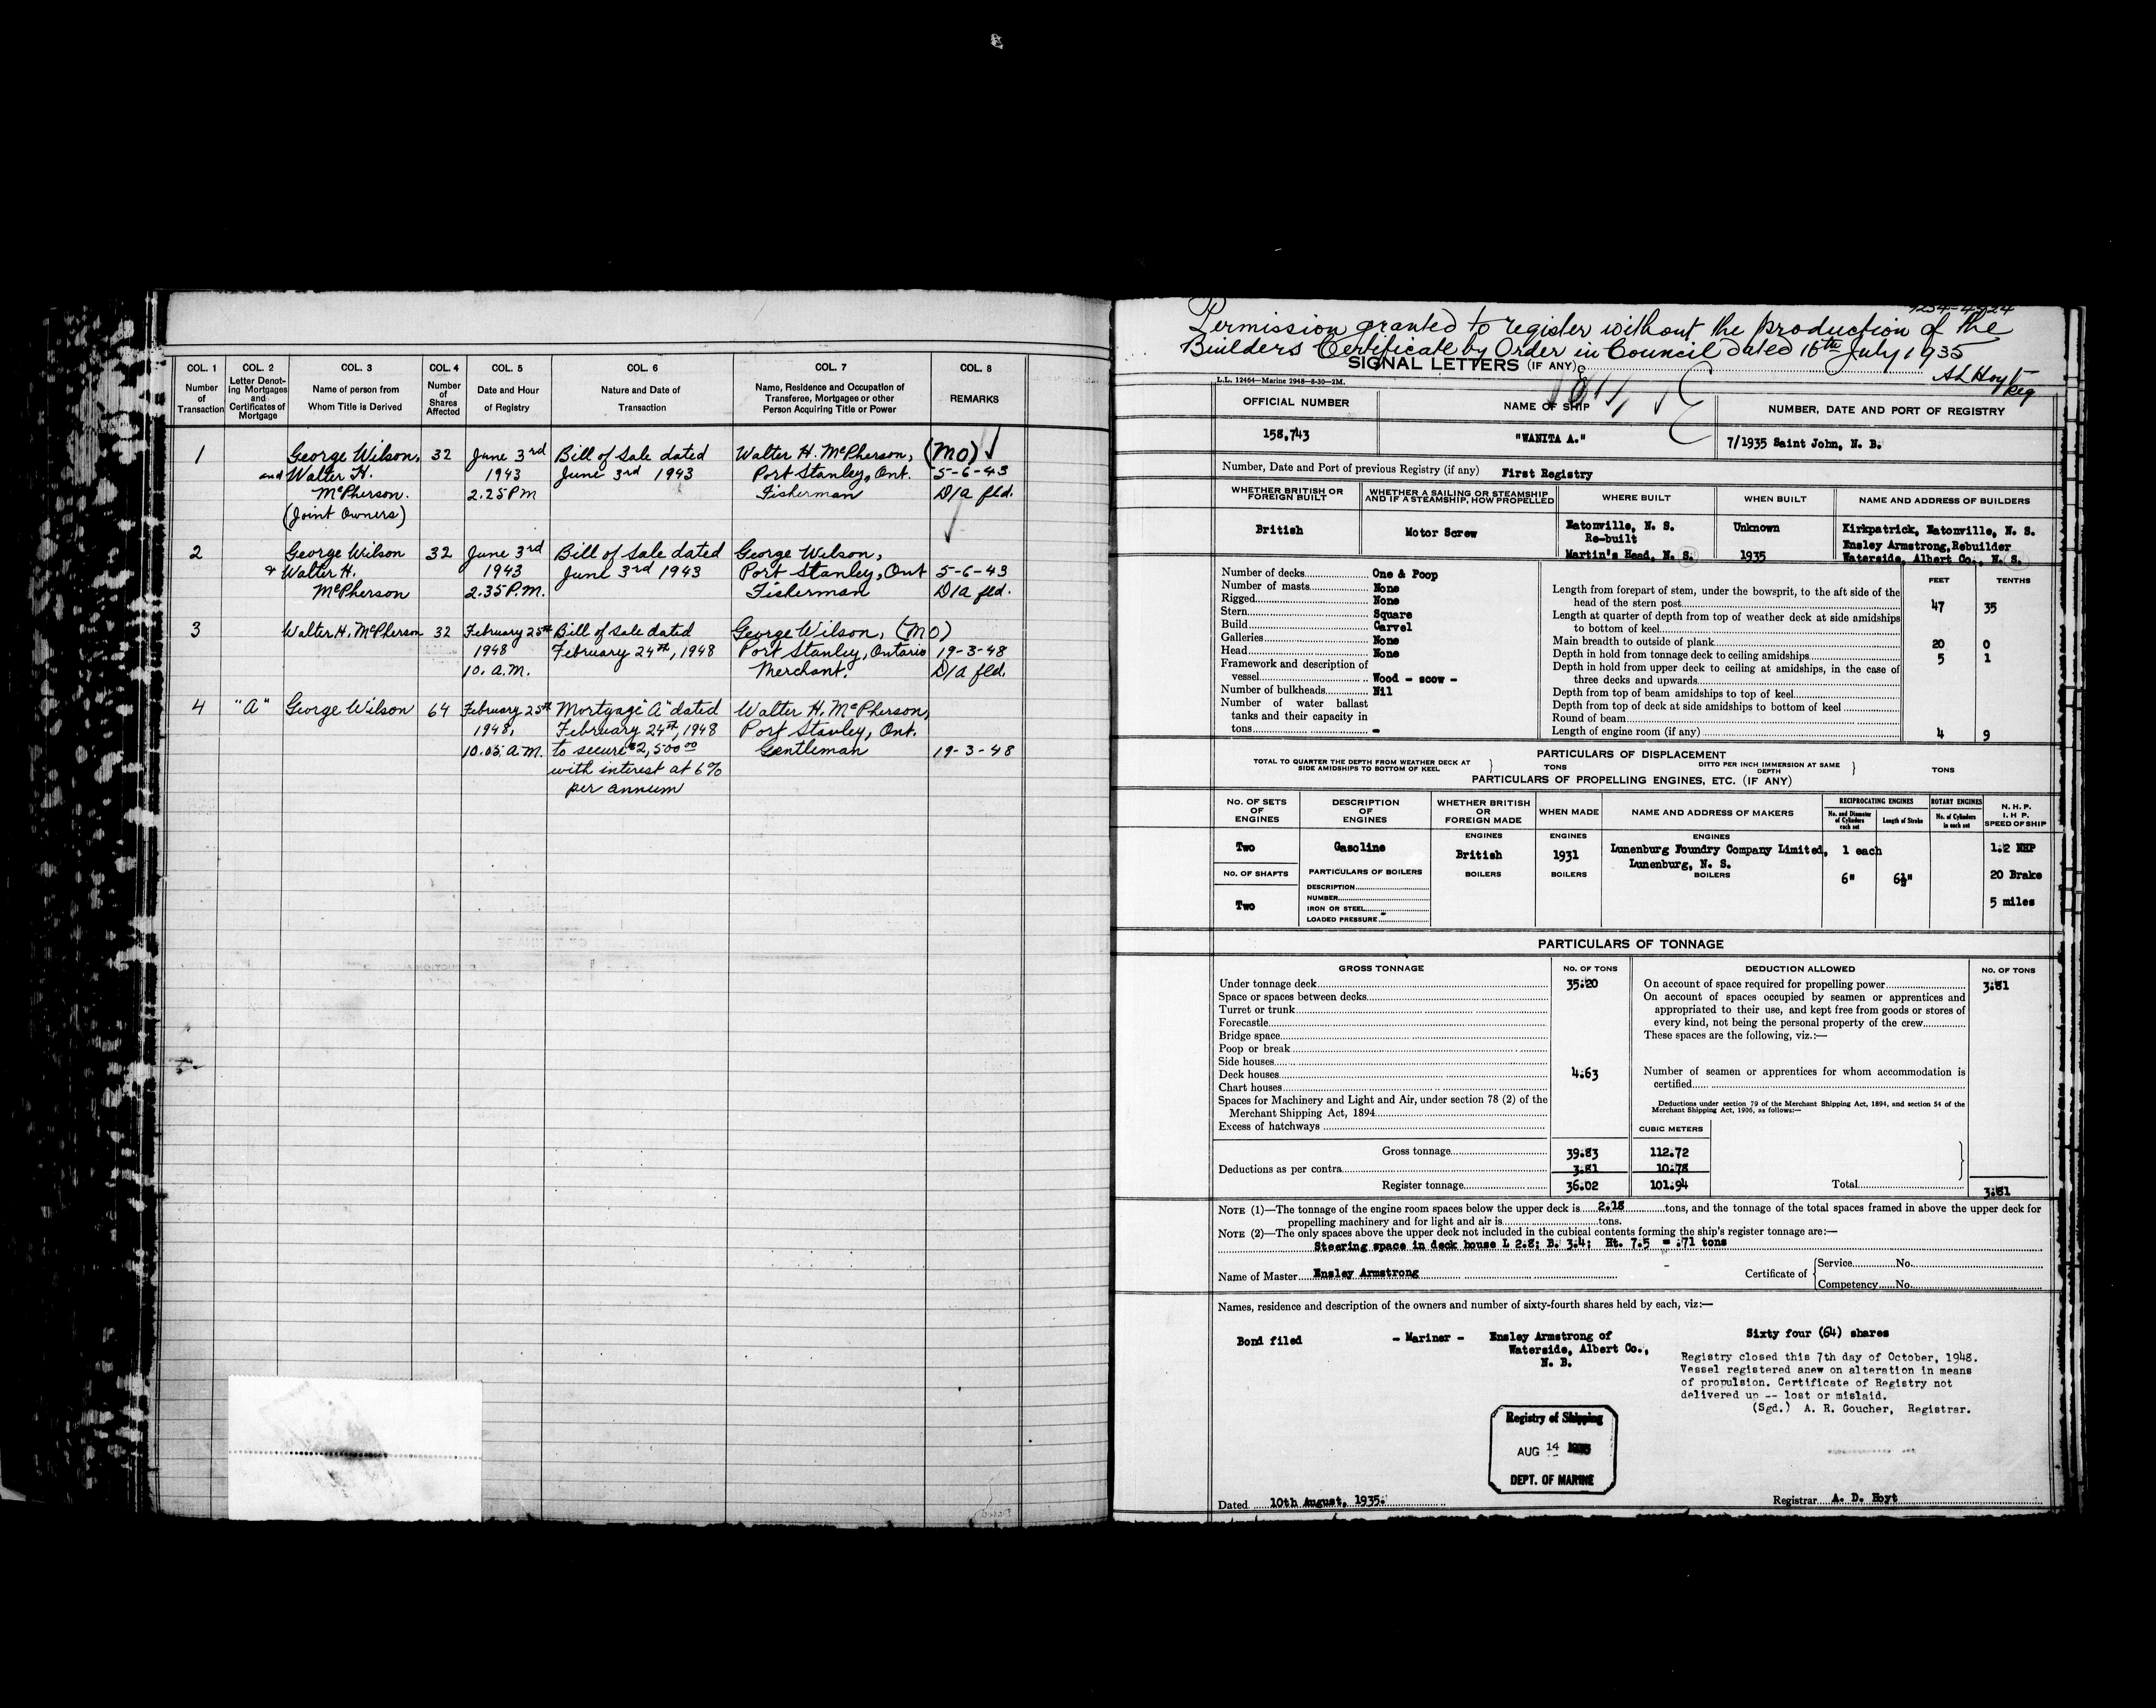 COL. 1
Number
of
Transaction
COL. 2
Letter Denot-
ing Mortgages
and
Certificates of
Mortgage
COL. 3
Name of person from
Whom Title is Derived
COL. 4
Number
of
Shares
Affected
COL. 5
Date and Hour
of Registry
COL. 6
Nature and Date of
Transaction
COL. 7
Name, Residence and Occupation of
Transferee, Mortgagee or other
Person Acquiring Title or Power
COL. 8
REMARKS
1 George Wilson, 32 June 3rd Bill of Sale dated Walter H. McPherson, (MO)
and Walter H. 1943 June 3rd 1943 Port Stanley, Ont. 5-6-43
McPherson. 2.25 PM Fisherman D/a fld.
(Joint Owners)
2 George Wilson 32 June 3rd Bill of Sale dated George Wilson,
& Walter H. 1943 June 3rd 1943 Port Stanley, Ont 5-6-43
McPherson 2.35 P.M. Fisherman D/a fld.
3 Walter H. McPherson 32 February 25th Bill of Sale dated George Wilson, (MO)
1948 February 24th, 1948 Port Stanley, Ontario 19-3-48
10. A.M. Merchant. D/a fld.
4 "A" George Wilson 64 February 25th Mortgage "A" dated Walter H. McPherson,
1948, February 24th, 1948 Port Stanley, Ont.
10.05. A.M. to secure $2,500.00 Gentleman 19-3-48
with interest at 6%
per annum
Permission granted to register without the production of the
Builders Certificate by Order in Council dated 16th July 1935
SIGNAL LETTERS (IF ANY)
A L Hoyt
Reg
L.L. 12464—Marine 2948—8-30—2M.
OFFICIAL NUMBER NAME OF SHIP NUMBER, DATE AND PORT OF REGISTRY
158,743 "WANITA A." 7/1935 Saint John, N. B.
Number, Date and Port of previous Registry (if any) First Registry
WHETHER BRITISH OR
FOREIGN BUILT
WHETHER A SAILING OR STEAMSHIP
AND IF A STEAMSHIP, HOW PROPELLED
WHERE BUILT WHEN BUILT NAME AND ADDRESS OF BUILDERS
British Motor Screw Eatonville, N. S. Unknown Kirkpatrick, Eatonville, N. S.
Re-built Ensley Armstrong, Rebuilder
Martin's Head, N. S. 1935 Waterside, Albert Co., N. S.
Number of decks One & Poop
Number of masts None
Rigged None
Stern Square
Build Carvel
Galleries None
Head None
Framework and description of
vessel Wood - scow -
Number of bulkheads Nil
Number of water ballast
tanks and their capacity in
tons -
FEET TENTHS
Length from forepart of stem, under the bowsprit, to the aft side of the
head of the stern post 47 35
Length at quarter of depth from top of weather deck at side amidships
to bottom of keel
Main breadth to outside of plank 20 0
Depth in hold from tonnage deck to ceiling amidships 5 1
Depth in hold from upper deck to ceiling at amidships, in the case of
three decks and upwards
Depth from top of beam amidships to top of keel
Depth from top of deck at side amidships to bottom of keel
Round of beam
Length of engine room (if any) 4 9
PARTICULARS OF DISPLACEMENT
TOTAL TO QUARTER THE DEPTH FROM WEATHER DECK AT
SIDE AMIDSHIPS TO BOTTOM OF KEEL
TONS
DITTO PER INCH IMMERSION AT SAME
DEPTH
TONS
PARTICULARS OF PROPELLING ENGINES, ETC. (IF ANY)
No. OF SETS
OF
ENGINES
DESCRIPTION
OF
ENGINES
WHETHER BRITISH
OR
FOREIGN MADE
WHEN MADE
NAME AND ADDRESS OF MAKERS
RECIPROCATING ENGINES
No. and Diameter
of Cylinders
each set
Length of Stroke
ROTARY ENGINES
No. of Cylinders
in each set
N. H. P.
I. H. P.
SPEED OF SHIP
ENGINES ENGINES ENGINES
Two Gasoline British 1931 Lunenburg Foundry Company Limited, 1 each 1.2 NHP
Lunenburg, N. S.
No. OF SHAFTS PARTICULARS OF BOILERS BOILERS BOILERS BOILERS 6" 6½" 20 Brake
DESCRIPTION
NUMBER
Two IRON OR STEEL 5 miles
LOADED PRESSURE -
PARTICULARS OF TONNAGE
GROSS TONNAGE No. OF TONS DEDUCTION ALLOWED No. OF TONS
Under tonnage deck 35.20
Space or spaces between decks
Turret or trunk
Forecastle
Bridge space
Poop or break
Side houses
Deck houses 4.63
Chart houses
Spaces for Machinery and Light and Air, under section 78 (2) of the
Merchant Shipping Act, 1894
Excess of hatchways
On account of space required for propelling power 3.81
On account of spaces occupied by seamen or apprentices and
appropriated to their use, and kept free from goods or stores of
every kind, not being the personal property of the crew
These spaces are the following, viz.:—
Number of seamen or apprentices for whom accommodation is
certified
Deductions under section 79 of the Merchant Shipping Act, 1894, and section 54 of the
Merchant Shipping Act, 1906, as follows:—
CUBIC METERS
Gross tonnage 39.83 112.72
Deductions as per contra 3.81 10.78
Register tonnage 36.02 101.94 Total 3.81
NOTE (1)—The tonnage of the engine room spaces below the upper deck is 2.18 tons, and the tonnage of the total spaces framed in above the upper deck for
propelling machinery and for light and air is tons.
NOTE (2)—The only spaces above the upper deck not included in the cubical contents forming the ship's register tonnage are:—
Steering space in deck house L 2.8; B. 3.4; Ht. 7.5 = .71 tons
Name of Master Ensley Armstrong Certificate of Service No.
Competency No.
Names, residence and description of the owners and number of sixty-fourth shares held by each, viz:—
Bond filed - Mariner - Ensley Armstrong of Sixty four (64) shares
Waterside, Albert Co.,
N. B.
Registry closed this 7th day of October, 1948.
Vessel registered anew on alteration in means
of propulsion. Certificate of Registry not
delivered up -- lost or mislaid.
(Sgd.) A. R. Goucher, Registrar.
Registry of Shipping
AUG 14 1935
DEPT. OF MARINE
Dated 10th August, 1935. Registrar A. D. Hoyt